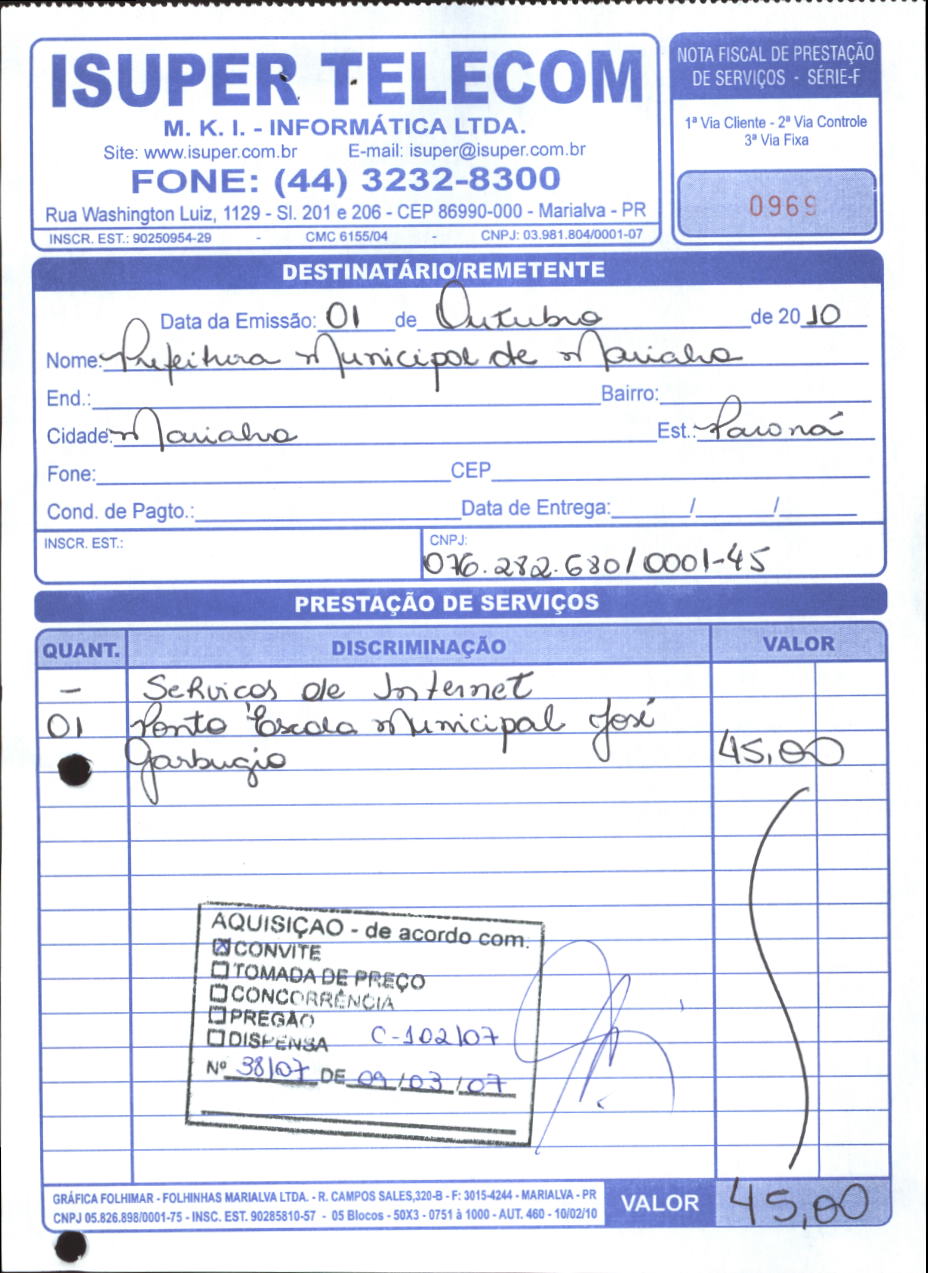 ISUPER TELECOM
M. K. I. - INFORMÁTICA LTDA.
Site: www.isuper.com.br E-mail: isuper@isuper.com.br
FONE: (44) 3232-8300
Rua Washington Luiz, 1129 - Sl. 201 e 206 - CEP 86990-000 - Marialva - PR
INSCR. EST.: 90250954-29 - CMC 6155/04 - CNPJ: 03.981.804/0001-07
NOTA FISCAL DE PRESTAÇÃO
DE SERVIÇOS - SÉRIE-F
1ª Via Cliente - 2ª Via Controle
3ª Via Fixa
0969
DESTINATÁRIO/REMETENTE
Data da Emissão: 01 de Outubro de 2010
Nome: Prefeitura Municipal de Marialva
End.: Bairro:
Cidade: Marialva Est.: Paraná
Fone: CEP
Cond. de Pagto.: Data de Entrega: / /
INSCR. EST.: CNPJ:
076.282.680/0001-45
PRESTAÇÃO DE SERVIÇOS
QUANT. DISCRIMINAÇÃO VALOR
- Servicos de Internet
01 Ponto Escola Municipal José
Garbugio 45,00
AQUISIÇÃO - de acordo com:
☒ CONVITE
☐ TOMADA DE PREÇO
☐ CONCORRÊNCIA
☐ PREGÃO
☐ DISPENSA C-102/07
Nº 38/07 DE 09/03/07
GRÁFICA FOLHIMAR - FOLHINHAS MARIALVA LTDA. - R. CAMPOS SALES,320-B - F: 3015-4244 - MARIALVA - PR
CNPJ 05.826.898/0001-75 - INSC. EST. 90285810-57 - 05 Blocos - 50X3 - 0751 à 1000 - AUT. 460 - 10/02/10
VALOR 45,00